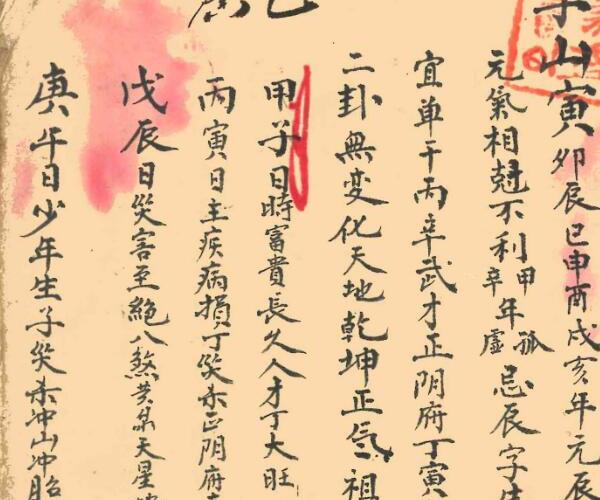 山寅卯辰巳申酉戌亥年元辰
元氣相尅不利甲辛年孤虛忌辰字
宜单干丙辛武才正阴府丁寅
二卦無变化天地乾坤正気祖
甲子日時富貴長久人才丁大旺
丙寅日主疾病損丁災杀正阴府
戊辰日災害至絶八煞黄泉天星
庚午日少年生子災杀冲山冲